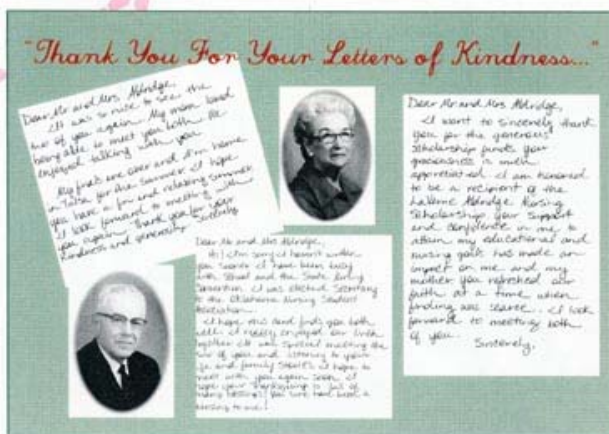 "Thank You For Your Letters of Kindness..."
Dear Mr and Mrs Aldridge,
It was so nice to see the
two of you again. My mom loved
being able to meet you both. We
enjoyed talking with you.
My finals are over and I'm home
in Tulsa for the summer. I hope
you have a fun and relaxing summer
I look forward to meeting with
you again. Thank you for your
kindness and generosity. Sincerely
Dear Mr and Mrs Aldridge,
Hi! I'm sorry I haven't written
you sooner I have been busy
with School and the State Nursing
Convention I was elected Secretary
to the Oklahoma Nursing Student
Association.
I hope this card finds you both
well. I really enjoyed our lunch
together It was special meeting the
two of you and listening to your
life and family stories I hope to
meet with you again soon I
hope your Thanksgiving is full of
many blessings. You sure have been a
blessing to me!
Dear Mr and Mrs Aldridge,
I want to sincerely thank
you for the generous
scholarship funds your
graciousness is much
appreciated. I am honored
to be a recipient of the
LaVerne Aldridge Nursing
Scholarship your support
and confidence in me to
attain my educational and
nursing goals has made an
impact on me and my
mother you refreshed our
faith at a time when
funding was scarce. I look
forward to meeting both
of you.
Sincerely,